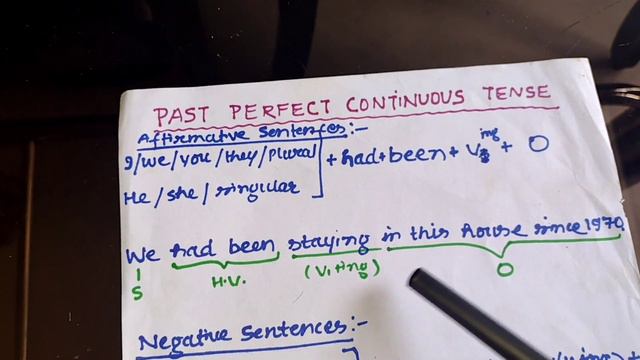 PAST PERFECT CONTINUOUS TENSE
Affirmative Sentences:-
I/we/you/they/plural
He/she/singular
+had+been+V ing + O
We had been staying in this house since 1970.
S H.V. (V1+ing) O
Negative Sentences:-